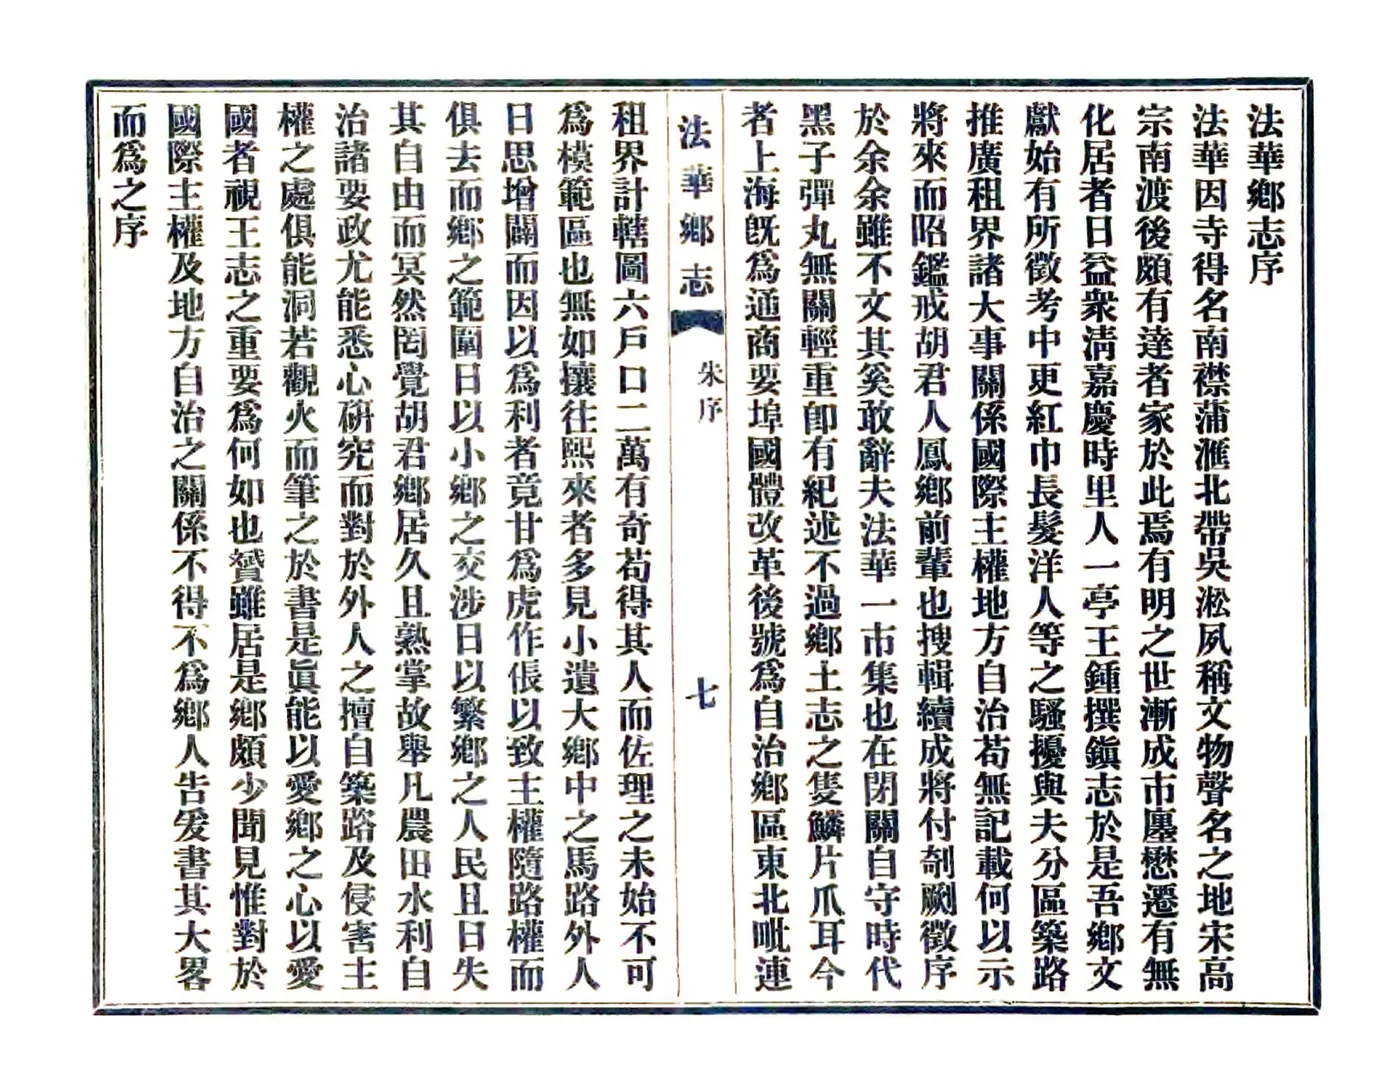 法華鄉志序
法華因寺得名南襟蒲滙北帶吳淞夙稱文物聲名之地宋高
宗南渡後頗有達者家於此焉有明之世漸成市廛懋遷有無
化居者日益衆淸嘉慶時里人一亭王鍾撰鎭志於是吾鄉文
獻始有所徵考中更紅巾長髮洋人等之騷擾與夫分區築路
推廣租界諸大事關係國際主權地方自治苟無記載何以示
將來而昭鑑戒胡君人鳳鄉前輩也搜輯續成將付剞劂徵序
於余余雖不文其奚敢辭夫法華一市集也在閉關自守時代
黑子彈丸無關輕重卽有紀述不過鄉土志之隻鱗片爪耳今
者上海旣爲通商要埠國體改革後號爲自治鄉區東北毗連
法華鄉志
朱序
七
租界計轄圖六戶口二萬有奇苟得其人而佐理之未始不可
爲模範區也無如攘往熙來者多見小遺大鄉中之馬路外人
日思增闢而因以爲利者竟甘爲虎作倀以致主權隨路權而
俱去而鄉之範圍日以小鄉之交涉日以繁鄉之人民且日失
其自由而冥然罔覺胡君鄉居久且熟掌故舉凡農田水利自
治諸要政尤能悉心硏究而對於外人之擅自築路及侵害主
權之處俱能洞若觀火而筆之於書是眞能以愛鄉之心以愛
國者視王志之重要爲何如也贇雖居是鄉頗少聞見惟對於
國際主權及地方自治之關係不得不爲鄉人告爰書其大畧
而爲之序